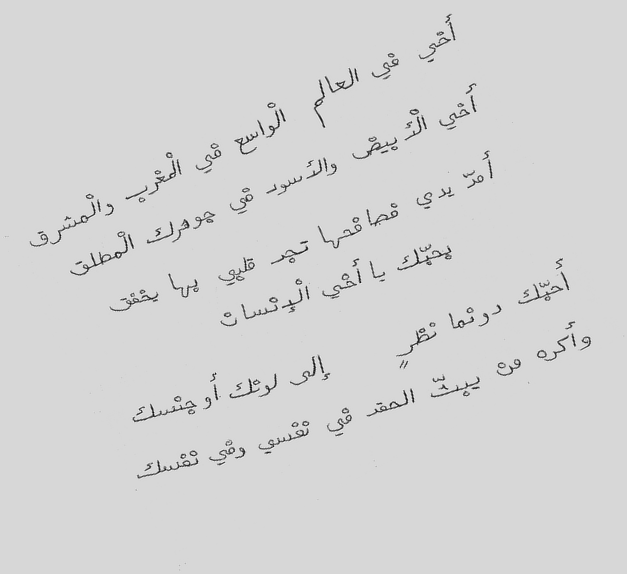 أخي في العالم الْواسع في الْمغْرب والْمشرق
أخي الْأبيض والأسود في جوهرك الْمطلق
أمدّ يدي فصافحها تجد قلبي بها يخفق
بحبّك يا أخي الْإنسان
أحبّك دونما نظرٍ إلى لونك أو جنسك
وأكره من يبثّ الحقد في نفسي وفي نفسك